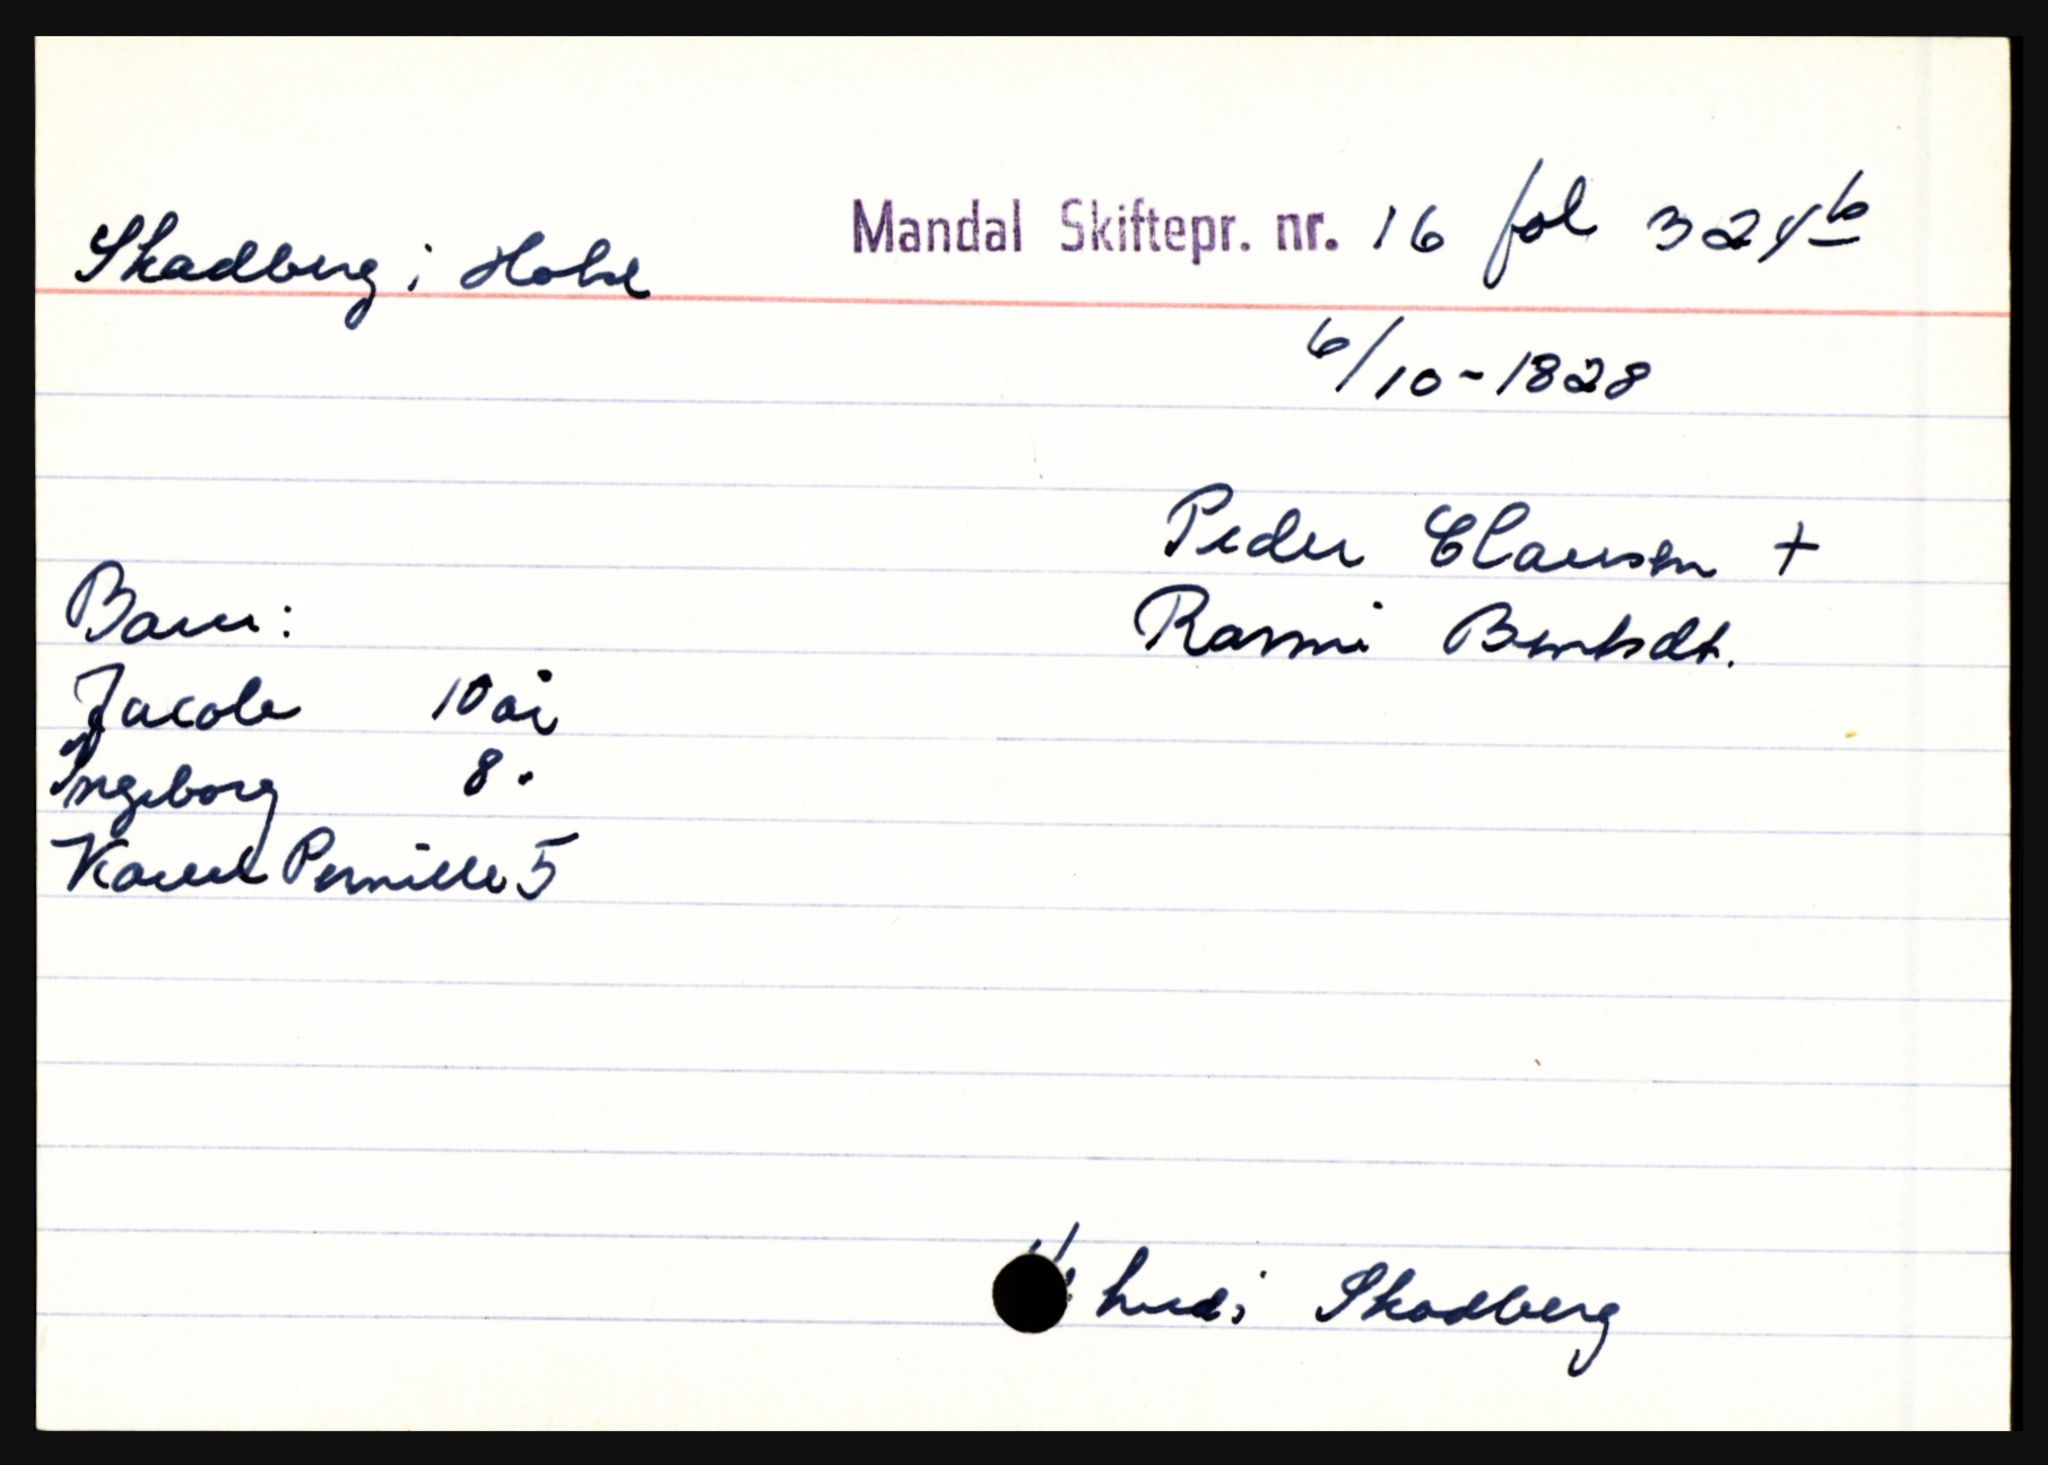 Skadberg i Halse
Mandal Skiftepr. nr. 16 fol 324b
6/10-1828
Peder Clausen +
Rasmi Berntsdt.
Barn:
Jacob 10 år
Ingeborg 8 "
Karen Pernille 5
Skadberg